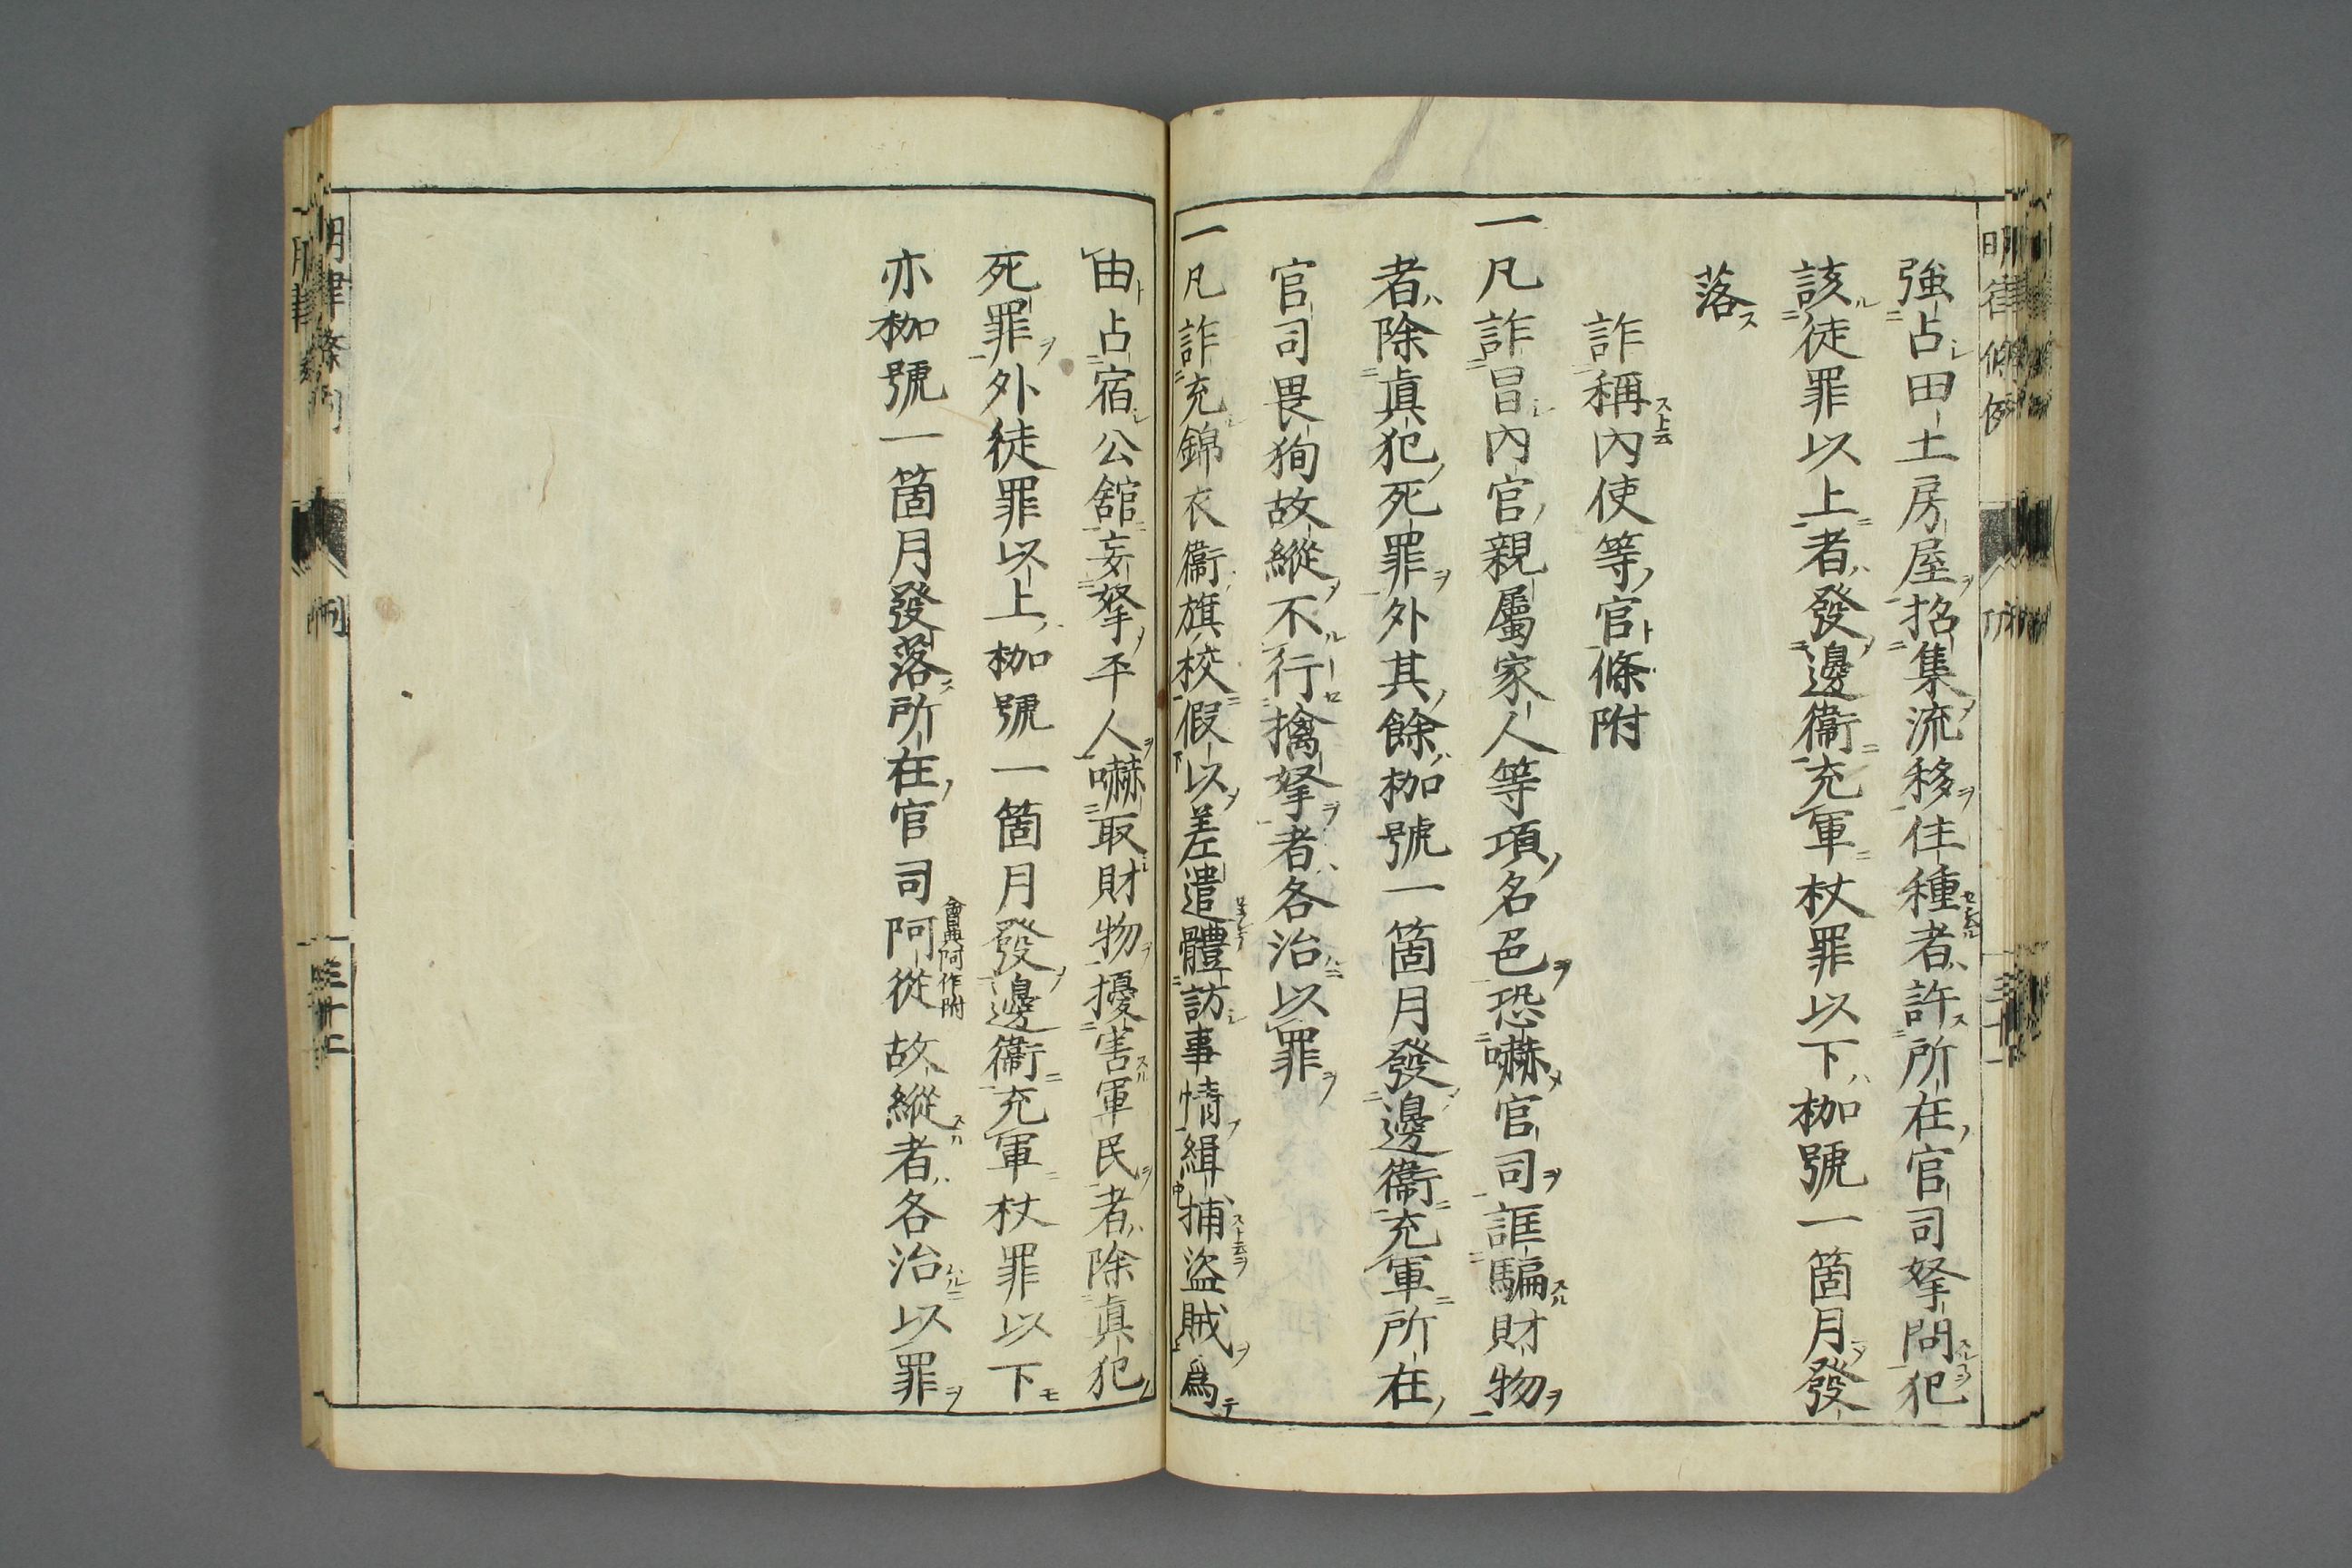 強占田土房屋招集流移住種者許所在官司拏問犯
該徒罪以上者發邊衞充軍杖罪以下枷號一箇月發
落
詐稱內使等官條附
一凡詐冒內官親屬家人等項名色恐嚇官司誆騙財物
者除眞犯死罪外其餘枷號一箇月發邊衞充軍所在
官司畏徇故縱不行擒拏者各治以罪
一凡詐充錦衣衞旗校假以差遣體訪事情緝捕盜賊爲
由占宿公舘妄拏平人嚇取財物擾害軍民者除眞犯
死罪外徒罪以上枷號一箇月發邊衞充軍杖罪以下
亦枷號一箇月發落所在官司阿從故縱者各治以罪
會典阿作附